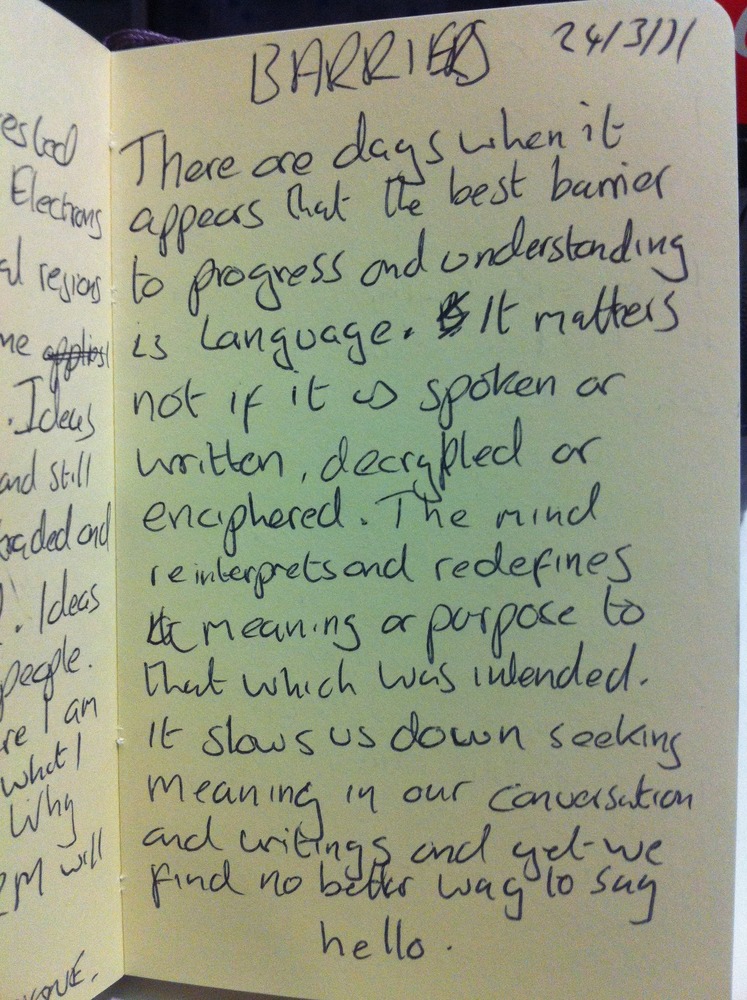 esbed
Electrons
al regions
me
. Ideas
and still
oaded and
. Ideas
people.
re I am
what I
Why
2M will
BARRIERS 24/3/11
There are days when it
appears that the best barrier
to progress and understanding
is language. It matters
not if it is spoken or
written, decrypted or
enciphered. The mind
reinterprets and redefines
meaning or purpose to
that which was intended.
It slows us down seeking
meaning in our conversation
and writings and yet we
find no better way to say
hello.